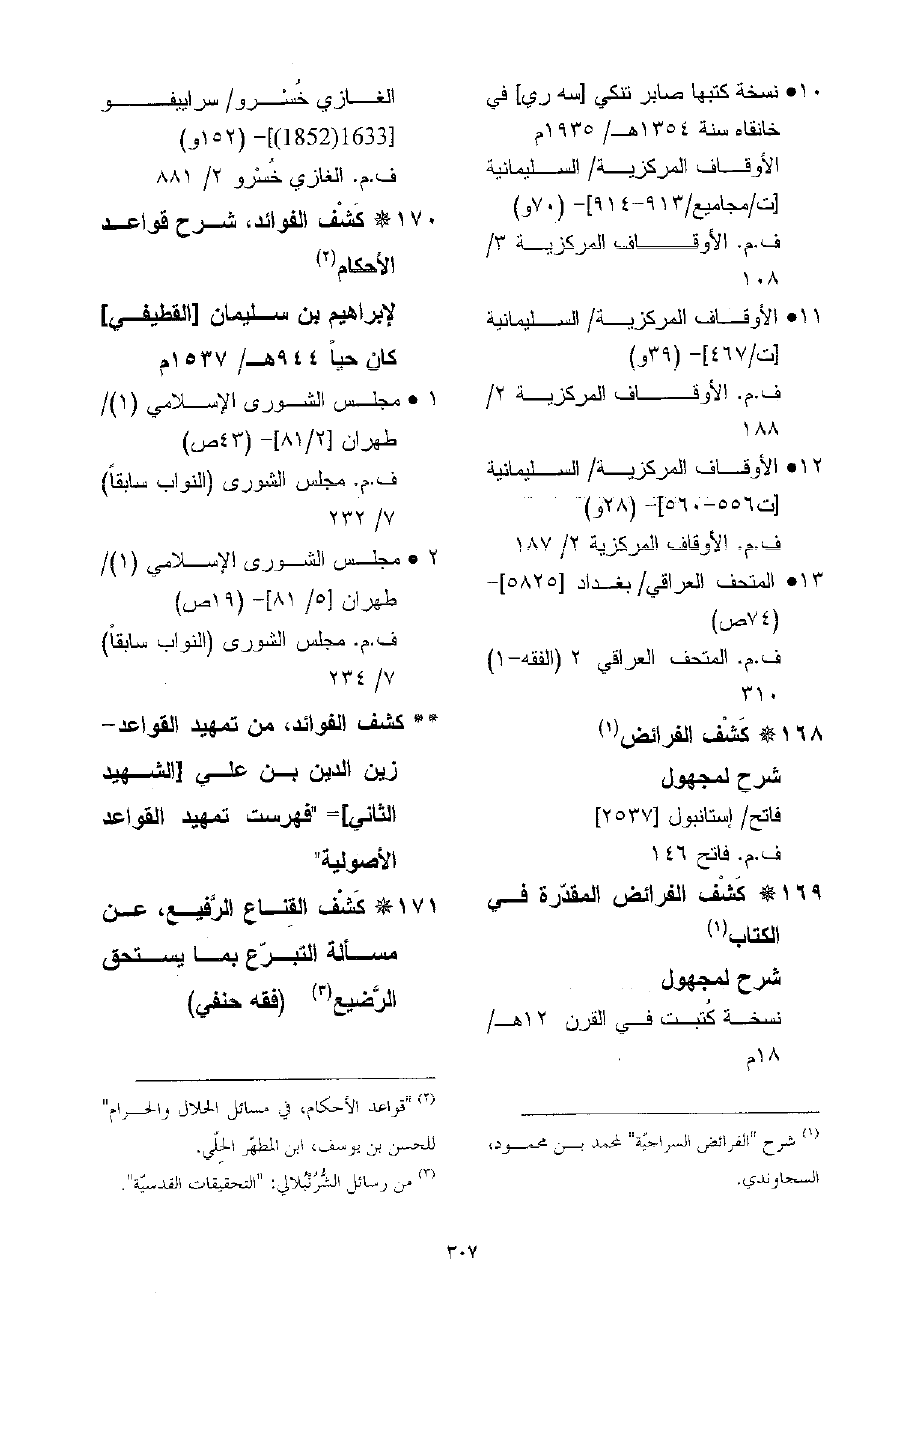 ١٠• نسخة كتبها صابر تنكي [سه ري] في
خانقاه سنة ١٣٥٤هـ/ ١٩٣٥م
الأوقاف المركزية/ السليمانية
[ت/مجاميع/٩١٣–٩١٤]– (٧٠و)
ف.م. الأوقاف المركزية ٣/
١٠٨
١١• الأوقاف المركزية/ السليمانية
[ت/٤٦٧]– (٣٩و)
ف.م. الأوقاف المركزية ٢/
١٨٨
١٢• الأوقاف المركزية/ السليمانية
[ت٥٥٦–٥٦٠]– (٢٨و)
ف.م. الأوقاف المركزية ٢/ ١٨٧
١٣• المتحف العراقي/ بغداد [٥٨٢٥]–
(٧٤ص)
ف.م. المتحف العراقي ٢ (الفقه–١)
٣١٠
١٦٨* كَشْف الفرائض(١)
شرح لمجهول
فاتح/ إستانبول [٢٥٣٧]
ف.م. فاتح ١٤٦
١٦٩* كَشْف الفرائض المقدّرة في
الكتاب(١)
شرح لمجهول
نسخة كُتبت في القرن ١٢هـ/
١٨م
(١) شرح "الفرائض السراجيّة" لمحمد بن محمود،
السجاوندي.
الغازي خُسْرو/ سراييفو
[1633(1852)]– (١٥٢و)
ف.م. الغازي خُسْرو ٢/ ٨٨١
١٧٠* كَشْف الفوائد، شرح قواعد
الأحكام(٢)
لإبراهيم بن سليمان [القطيفي]
كان حياً ٩٤٤هـ/ ١٥٣٧م
١ • مجلس الشورى الإسلامي (١)/
طهران [٨١/٢]– (٤٣ص)
ف.م. مجلس الشورى (النواب سابقاً)
٧/ ٢٣٢
٢ • مجلس الشورى الإسلامي (١)/
طهران [٥/ ٨١]– (١٩ص)
ف.م. مجلس الشورى (النواب سابقاً)
٧/ ٢٣٤
** كشف الفوائد، من تمهيد القواعد–
زين الدين بن علي [الشهيد
الثاني]= "فهرست تمهيد القواعد
الأصولية"
١٧١* كَشْف القناع الرَّفيع، عن
مسألة التبرّع بما يستحق
الرَّضيع(٣) (فقه حنفي)
(٢) "قواعد الأحكام، في مسائل الحلال والحرام"
للحسن بن يوسف، ابن المطهّر الحِلّي.
(٣) من رسائل الشُّرُنْبُلالي: "التحقيقات القدسيّة".
٣٠٧